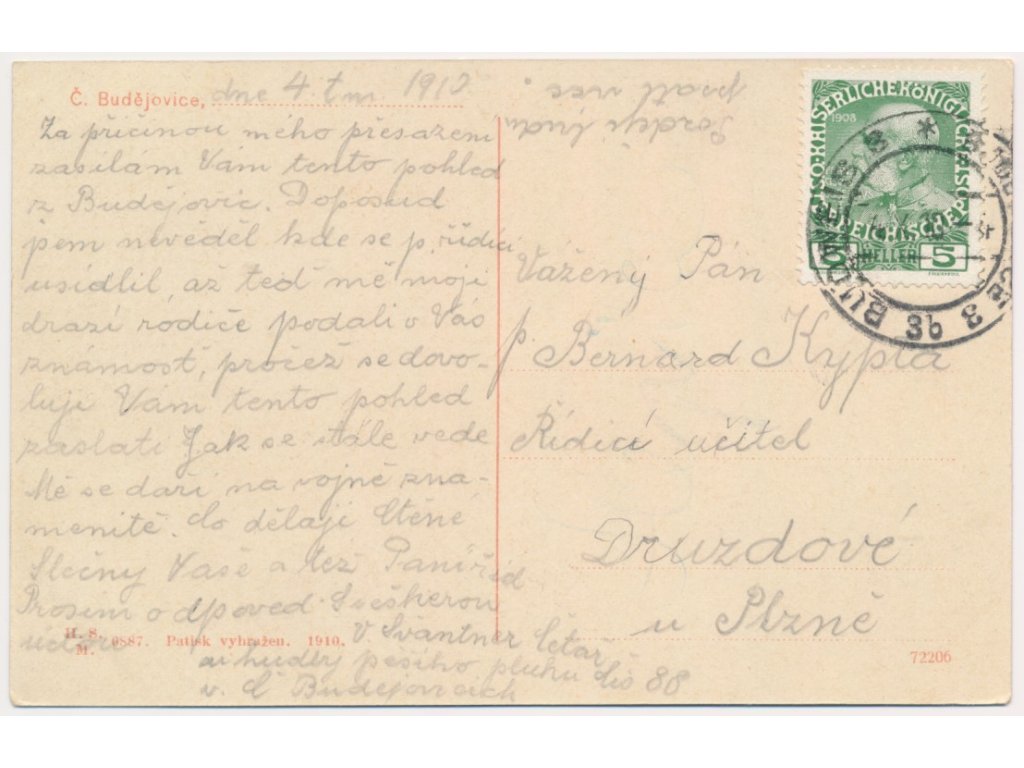 Č. Budějovice, dne 4. t.m. 1910
Za příčinou mého přesazení
zasílám Vám tento pohled
z Budějovic. Doposud
jsem nevěděl kde se p. řídící
usídlil, až teď mě moji
drazí rodiče podali o Vás
známost, pročež se dovo-
luji Vám tento pohled
zaslati Jak se stále vede
Mě se daří na vojně zna-
menitě. Co dělají Ctěné
Slečny Vaše a též Paní Říd
Prosím o dpoveď. S veškerou
úctou
V Svantner četař
u hudby pěšího pluku čís 88
v. Č Budějovcích
Vážený Pán
p. Bernard Kypta
Řídící učitel
Druzdové
u Plzně
KAISERLICHE KÖNIGLICHE OESTERREICHISCHE POST
1908
5 HELLER 5
BUDWEIS 3
3b
H. S.
M. 0887. Patisk vyhražen. 1910.
72206